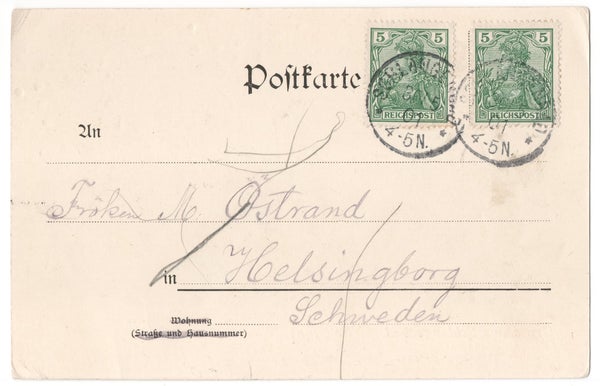 5 5
REICHSPOST REICHSPOST
Postkarte
01
4-5N. * 4-5N. *
An
Fröken M. Östrand
in Helsingborg
Schweden
Wohnung
(Straße und Hausnummer)